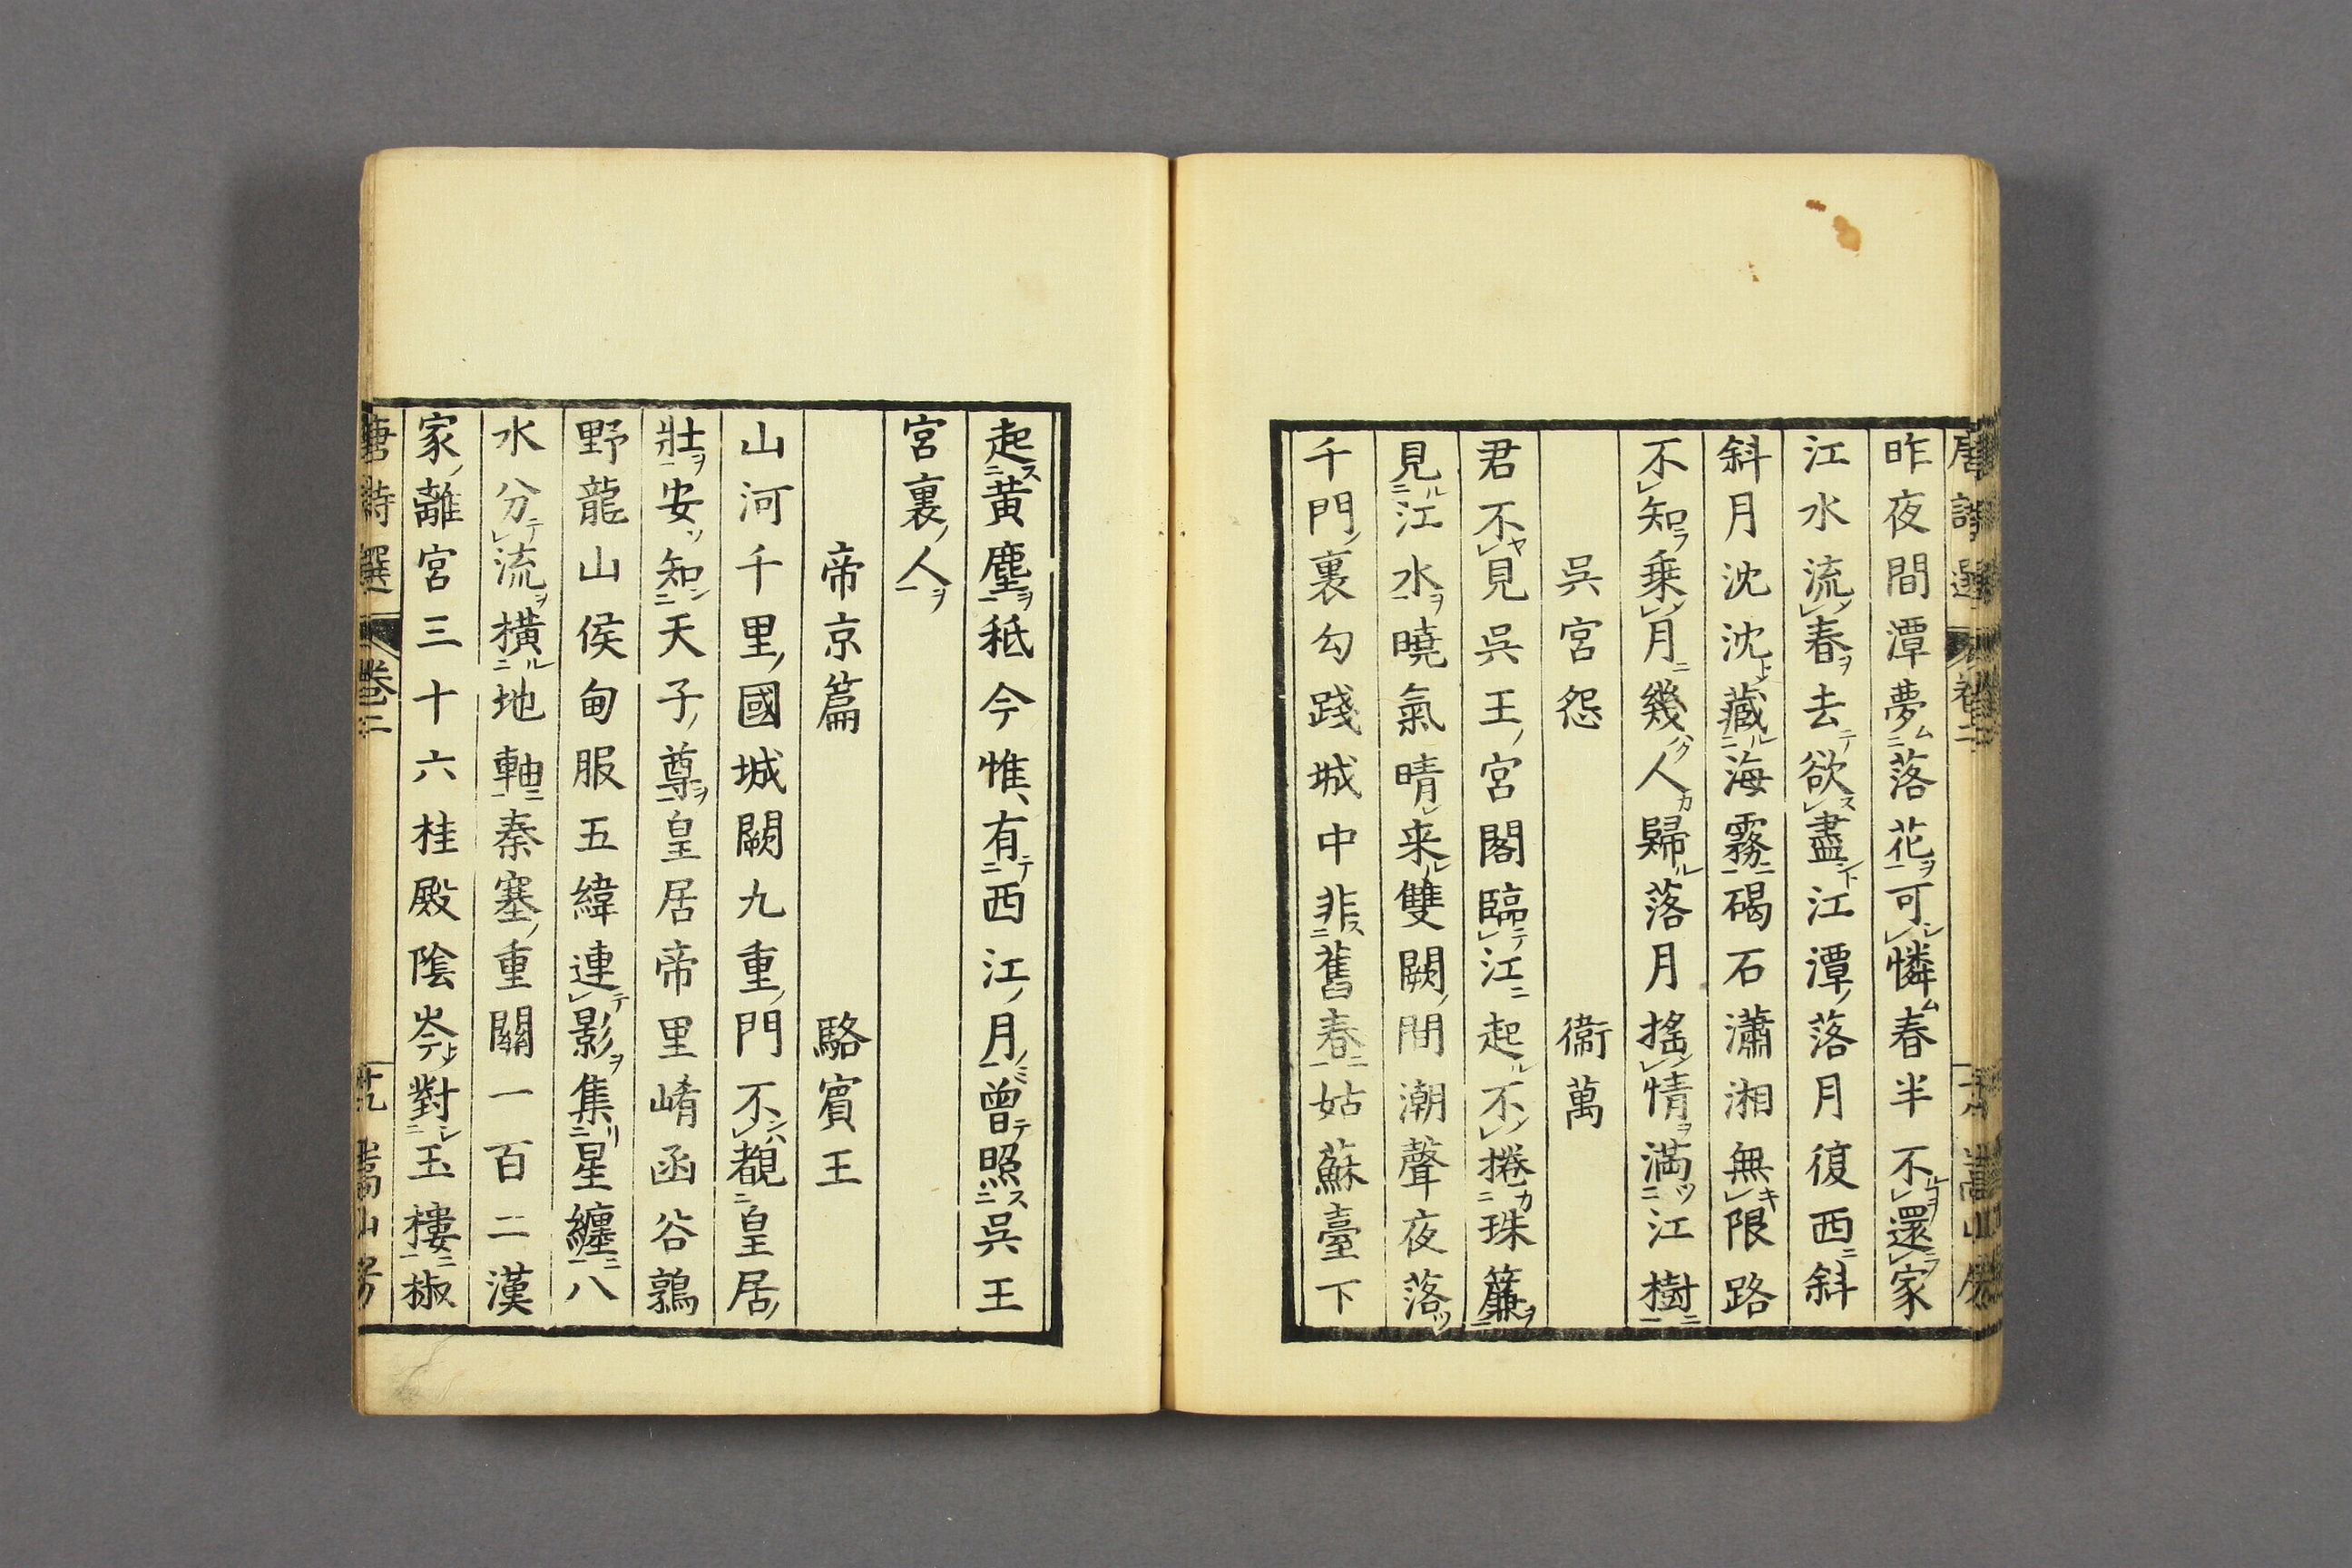 昨夜間潭夢落花可憐春半不還家
江水流春去欲盡江潭落月復西斜
斜月沈沈藏海霧碣石瀟湘無限路
不知乗月幾人歸落月搖情滿江樹
吳宮怨 衞萬
君不見吳王宮閣臨江起不捲珠簾
見江水曉氣晴来雙闕間潮聲夜落
千門裏勾踐城中非舊春姑蘇臺下
起黄塵秪今惟有西江月曾照吳王
宮裏人
帝京篇 駱賓王
山河千里國城闕九重門不覩皇居
壯安知天子尊皇居帝里崤函谷鶉
野龍山侯甸服五緯連影集星纏八
水分流橫地軸秦塞重關一百二漢
家離宮三十六桂殿陰岑對玉樓椒
唐詩選 卷二 十九 嵩山房